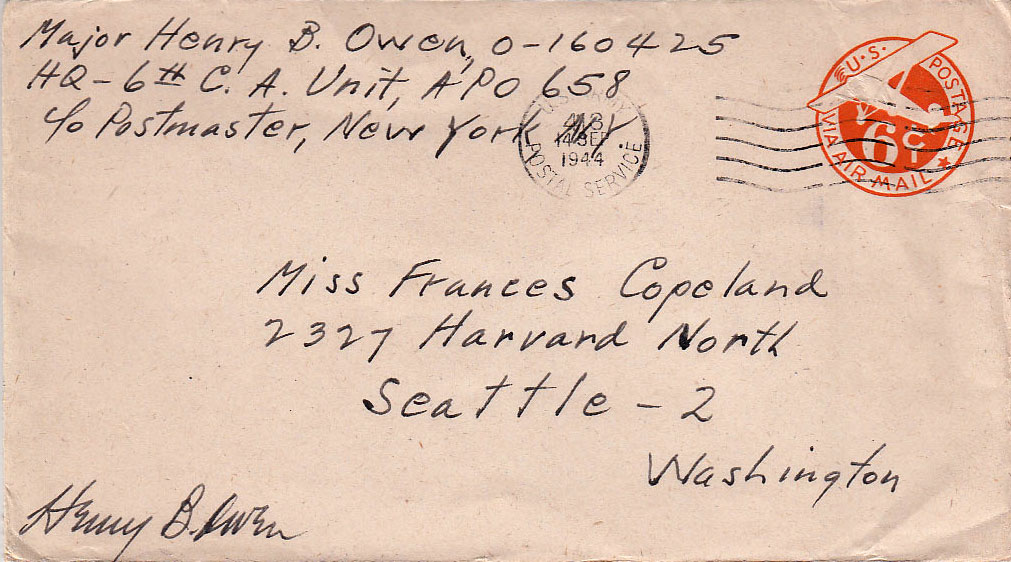 Major Henry B. Owen, O-160425
HQ-6th C. A. Unit, APO 658
c/o Postmaster, New York NY.
U.S. ARMY
413
14 SEP
1944
POSTAL SERVICE
U.S. POSTAGE
6 C
VIA AIR MAIL
Miss Frances Copeland
2327 Harvard North
Seattle - 2
Washington
Henry B. Owen